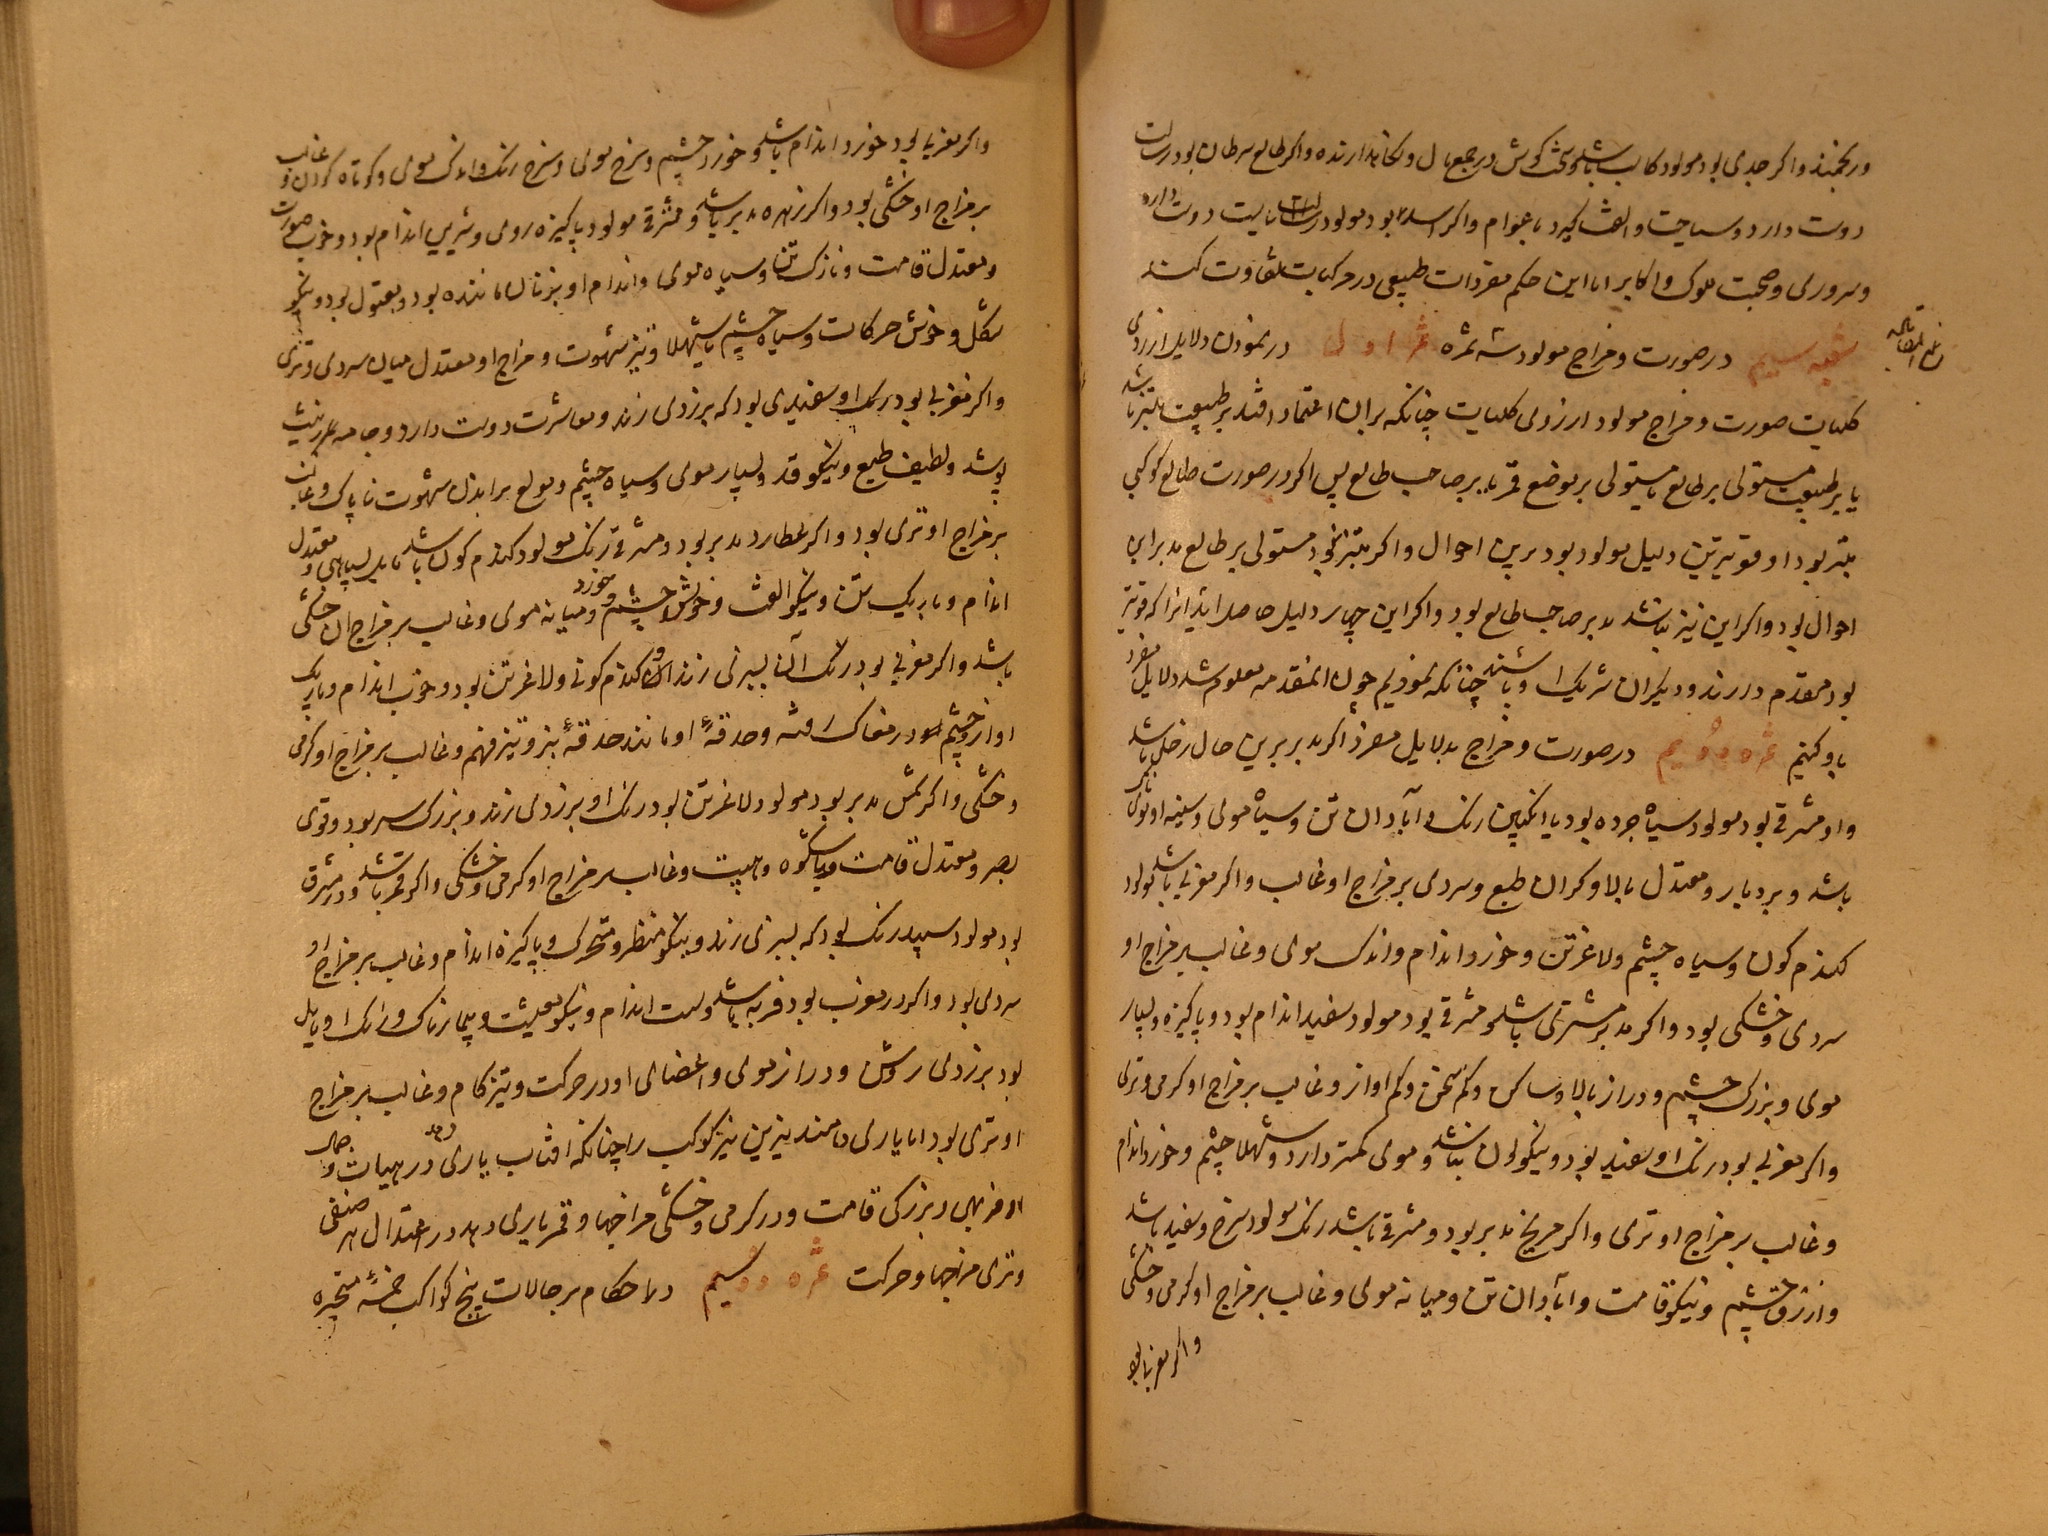 واکر جدی بود مولود کاسب باشد وسخت کوش در جمع مال ونکاهدارنده واکر طالع سرطان بود
دوست دارد وسیاحت والفت کیرد با عوام واکر اسد بود مولود دوست دارد
وسروری وصحبت ملوک واکابر اما این حکم مفردات طبیعی در مرکبات تفاوت کند
شعبه سیم در صورت ومزاج مولود سه ثمره ثمره اول در نمودن دلایل از روی
کلیات صورت ومزاج مولود از روی کلیات چنانکه بران اعتماد افتد بر طبیعت باشد
یا بر طبیعت مستولی بر طالع یا مستولی بر موضع قمر یا بر صاحب طالع پس اکر در صورت طالع کوکبی
بود او قویترین دلیل مولود بود برین احوال واکر نبود مستولی بر طالع مدبر این
احوال بود واکر این نیز نباشد مدبر صاحب طالع بود واکر این چهار دلیل حاصل اید انرا که قویتر
بود مقدم دارند ودیکران شریک او باشند چنانکه نمودیم چون المقدمه معلوم شد دلایل مفرد
یاد کنیم ثمره دویم در صورت ومزاج بدلایل مفرد اکر مدبر برین حال زحل باشد
واو مشرقی بود مولود سیاه جرده بود یا انکبین رنک وآبادان تن وسیاه موی وسینه او
باشد وبردبار ومعتدل بالا وکران طبع وسردی بر مزاج او غالب واکر مغربی باشد مولود
کندم کون وسیاه چشم ولاغر تن وخورد اندام واندک موی وغالب بر مزاج او
سردی وخشکی بود واکر مدبر مشتری باشد ومشرقی بود مولود سفید اندام بود وپاکیزه وبسیار
موی وبزرک چشم ودراز بالا وساکن وکم سخن وکم اواز وغالب بر مزاج او کرمی وتری
واکر مغربی بود رنک او سفید بود ونیکولون نباشد وموی کمتر دارد وشهلا چشم وخورد اندام
وغالب بر مزاج او تری واکر مریخ مدبر بود ومشرقی باشد رنک مولود سرخ وسفید باشد
وازرق چشم ونیکو قامت وآبادان تن ومیانه موی وغالب بر مزاج او کرمی وخشکی
واکر مغربی بود
واکر مغربی بود خورد اندام باشد وخورد چشم وسرخ موی وسرخ رنک واندک موی وکوتاه کردن وغالب
بر مزاج او خشکی بود واکر زهره مدبر باشد ومشرقی مولود پاکیزه روی وشیرین اندام بود وخوب صورت
ومعتدل قامت ونازک تن وسیاه موی واندام او بزنان ماننده بود ومقبول بود ونیکو
شکل وخوش حرکات وسیاه چشم یا شهلا وتیز شهوت ومزاج او معتدل میان سردی وتری
واکر مغربی بود رنک او سفیدی بود که بزردی زند ومعاشرت دوست دارد وجامه
پوشد ولطیف طبع ونیکو قد وبسیار موی وسیاه چشم ومولع براندن شهوت ناپاک وغالب
بر مزاج او تری بود واکر عطارد مدبر بود ومشرقی رنک مولود کندم کون باشد مایل بسیاهی ومعتدل
اندام وباریک تن ونیکو الفت وخوش چشم وخورد ومیانه موی وغالب بر مزاج ان خشکی
باشد واکر مغربی بود رنک آن بسبزی زند کندم کونی ولاغر تن بود وخوب اندام وباریک
اواز وچشم در مغاک افتاده وحدقهٔ او مانند حدقهٔ بز وتیز فهم وغالب بر مزاج او کرمی
وخشکی واکر شمس مدبر بود مولود لاغر تن بود رنک او بزردی زند وبزرک سر بود وقوی
بصر ومعتدل قامت وباشکوه وهیبت وغالب بر مزاج او کرمی وخشکی واکر قمر باشد ودر مشرق
بود مولود سپید رنک بود که بسبزی زند ونیکو منظر ومتحرک وپاکیزه اندام وغالب بر مزاج او
سردی بود واکر در مغرب بود فربه باشد وسست اندام ونیکو معیشت وبیمارناک ورنک او مایل
بود بزردی روشن ودراز موی واعضای او در حرکت وتیز کام وغالب بر مزاج
او تری بود اما یاری دهند نیرین نیز کوکب را چنانکه افتاب یاری دهد در هیات وجمال
وفربهی وبزرکی قامت ودر کرمی وخشکی مزاجها وقمر یاری دهد در اعتدال هر صنفی
وتری مزاجها وحرکت ثمره سیم در احکام بر حالات پنج کواکب خمسهٔ متحیره